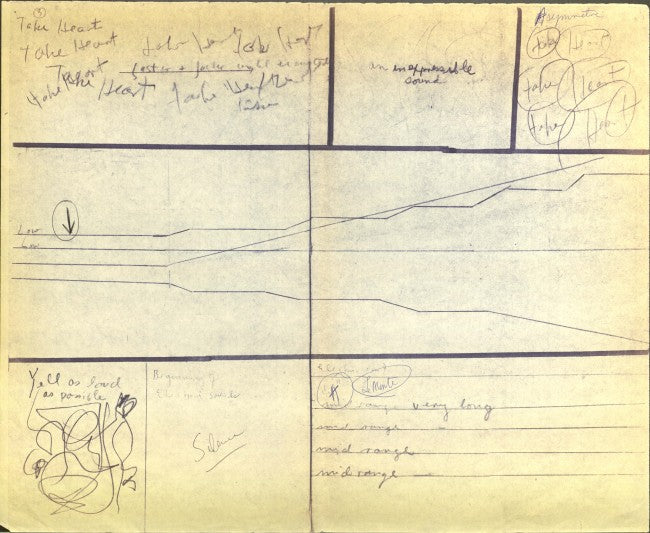 3
Take Heart
Take Heart
Take Heart
Take Heart
Take Heart Take Heart
faster + faster
Take Heart
an inexpressible
sound
Asymmetric
Take Heart
Take Heart
Take Heart
Low
Low
Yell as loud
as possible
Beginning of
Silence
"A" 1 Minute
mid range very long
mid range —
mid range
mid range —